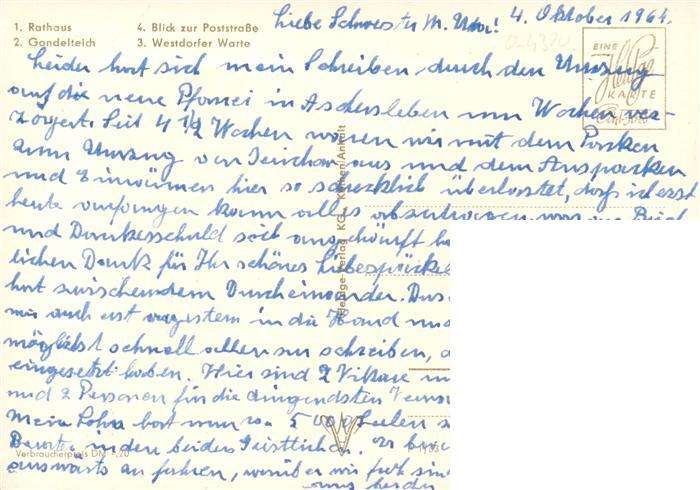 1. Rathaus 4. Blick zur Poststraße
2. Gondelteich 3. Westdorfer Warte
Liebe Schwester M. 4. Oktober 1964.
EINE
Heldge
KARTE
Leider hat sich mein Schreiben durch den Umzug
auf die neue Pfarrei in Aschersleben um Wochen ver-
zögert. Seit 4 1/2 Wochen waren wir mit dem Packen
zum Umzug von aus und dem Auspacken
und Einräumen hier so schrecklich überlastet, daß ich erst
heute anfangen kann alles abzutragen was an
und Dankesschuld sich angehäuft
lichen Dank für Ihr schönes Liebespäckche
hat zwischendem Durcheinander. Das
mir auch erst vorgestern in die Hand
möglichst schnell allen zu schreiben,
eingesetzt haben. Hier sind 2 Vikare
und 2 Personen für die dringendsten
Mein Sohn hat nun 5000 Seelen
in den beiden Geistlichen. Er
auswärts zu fahren, worüber wir froh sind
uns beiden
Verbraucherpreis DM -,20
Heldge-Verlag KG., Köthen/Anhalt